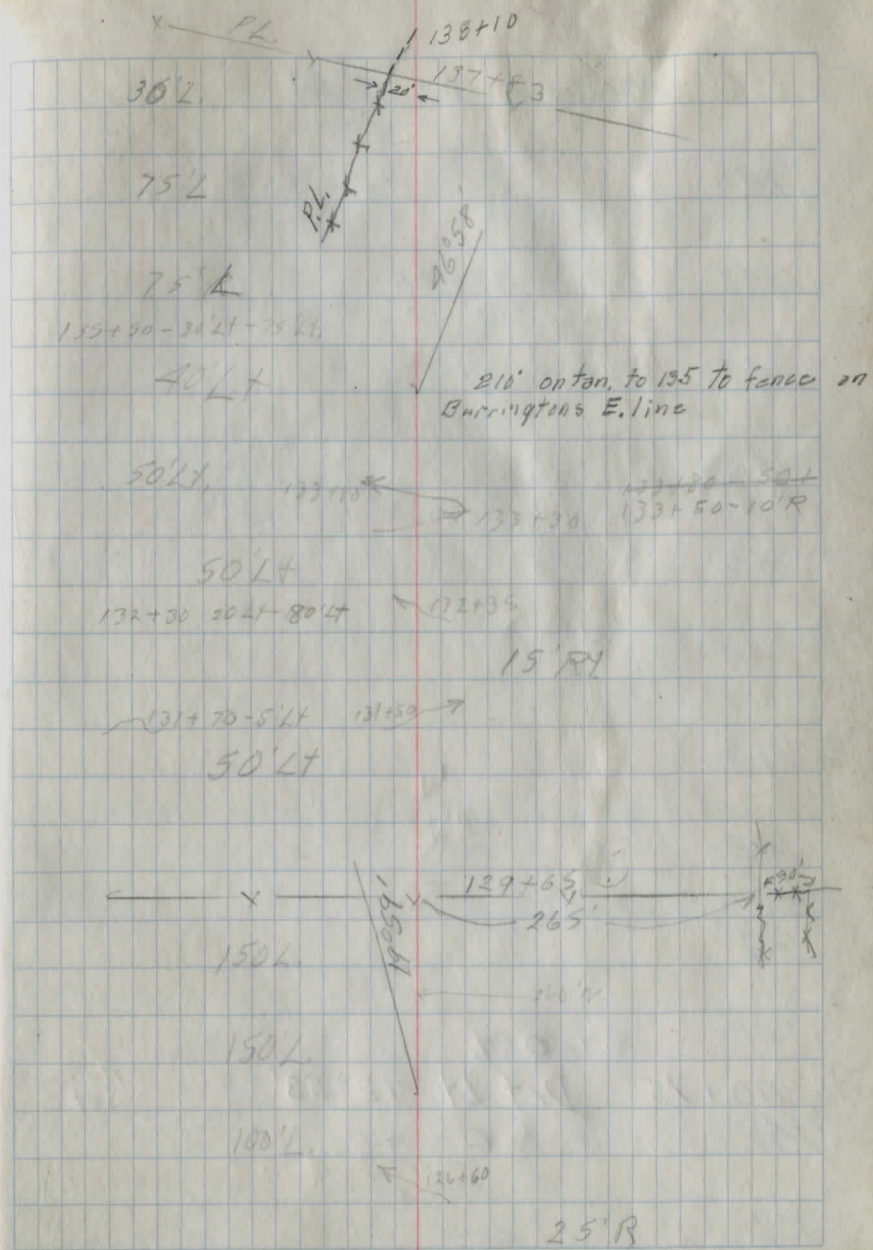 P.L.
138+10
30'L.
20'
75'L
P.L.
46°58'
75'L
135+50-30'Lt-75'Lt.
40'Lt
210' on tan. to 135 to fence on
Burringtons E. line
50'Lt.
133+30
133+50-10'R
50'Lt
132+30 20Lt-80'Lt
132+35
15'Rt
131+70-5'Lt
131+50
50'Lt
129+65
30'
265'
14°59'
150L.
150'L.
100'L.
126+60
25'R